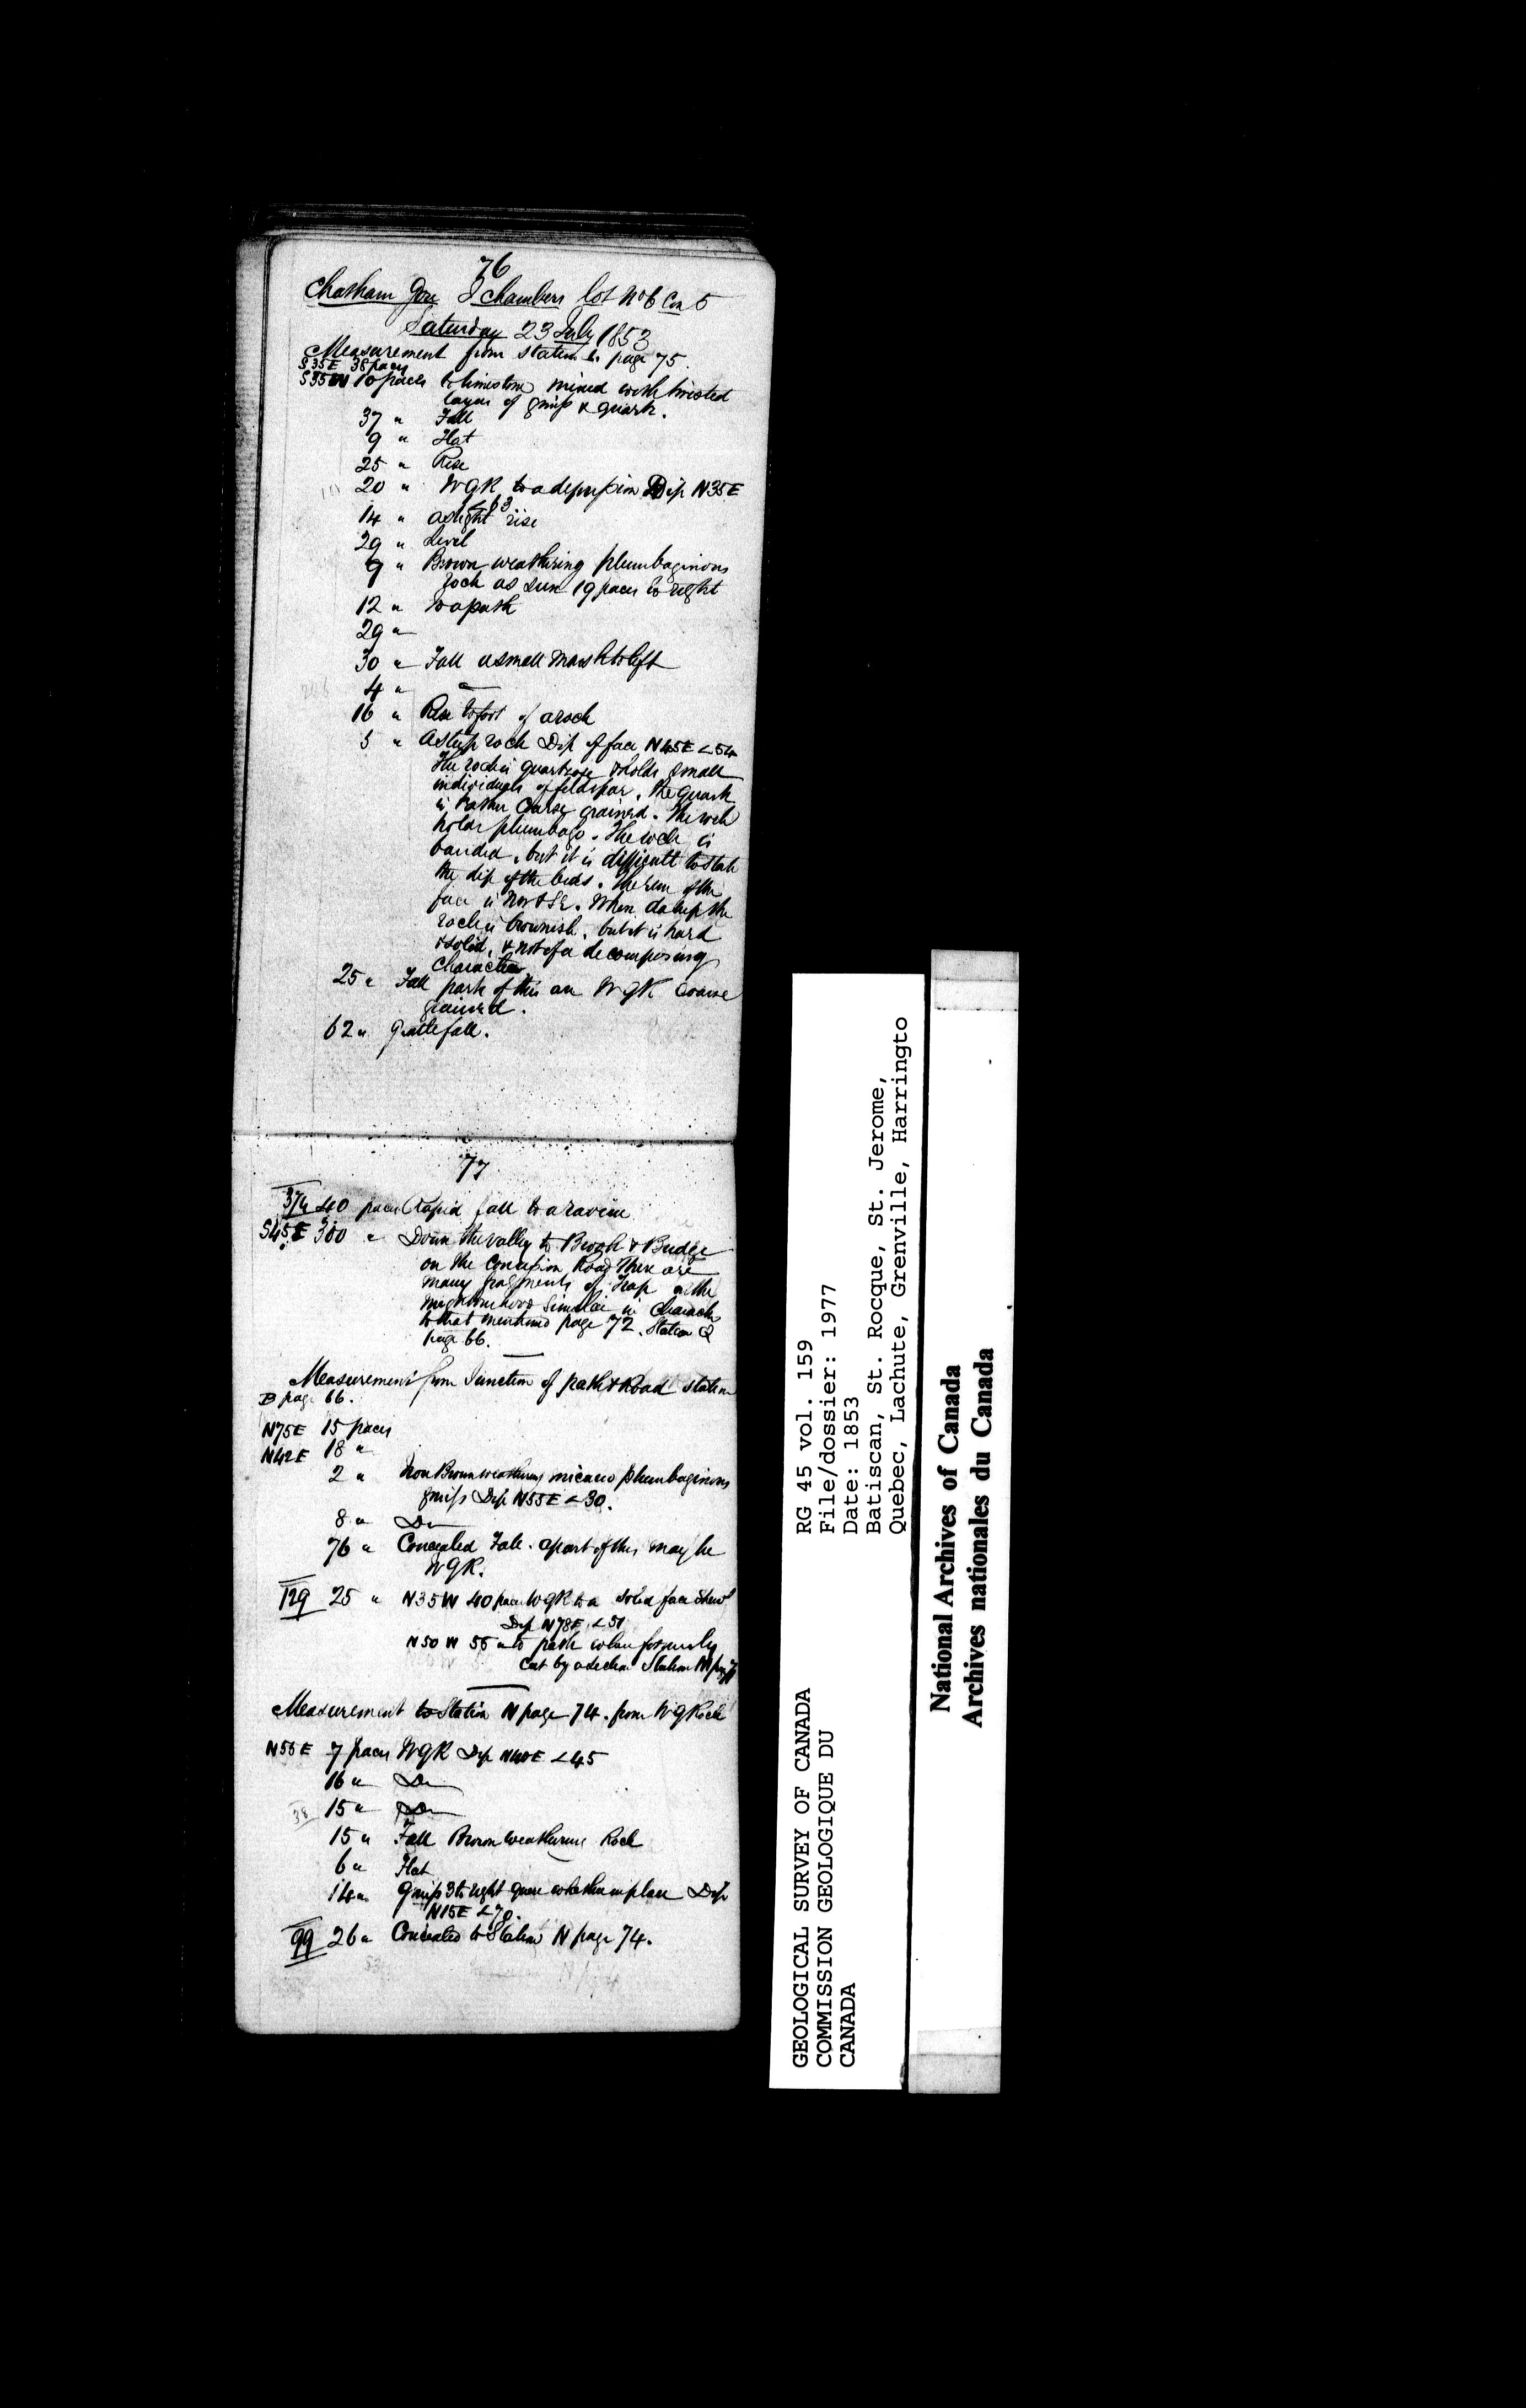 76
Chatham Gore J Chambers lot No 6 Con 5
Saturday 23 July 1853
Measurement from station L. page 75.
S35E 38 paces
S35W 10 paces to limestone mixed with twisted
layers of gneiss & quartz.
37 " Fall
9 " Flat
25 " Rise
20 " WGR to a depression Dip N35E
14 " a slight rise
29 " Level
9 " Brown weathering plumbaginous
rock as seen 19 paces to right
12 " to a path
29 "
30 " Fall a small marsh to left
4 "
16 " Rise to foot of a rock
5 " A steep rock Dip of face N45E <54
The rock is quartzose & holds small
individuals of feldspar. The quartz
is rather coarse grained. The rock
holds plumbago. The rock is
banded, but it is difficult to state
the dip of the beds. The run of the
face is NW & SE. When damp the
rock is brownish, but it is hard
& solid, & not of a decomposing
character
25 " Fall part of this on WGR coarse
grained.
62 " Gentle fall.
77
374 40 paces Rapid fall to a ravine
S45E 300 " Down the valley to Brook & Bridge
on the Concession Road There are
many fragments of trap in the
neighbourhood similar in character
to that mentioned page 72. Station Q
page 66.
Measurement from Junction of path & Road station
B page 66.
N75E 15 paces
N42E 18 "
2 " Brown weathering micaceo plumbaginous
gneiss Dip N55E <30.
8 " Do
76 " Concealed Fall. a part of this may be
WGR.
129 25 " N35W 40 paces WGR to a solid face shews
Dip N78E <51
N50W 56 " to path when formerly
cut by a section Station M page
Measurement to Station N page 74. from WG Rock
N56E 7 paces WGR Dip N40E <45
16 " Do
38 15 " Do
15 " Fall Brown weathering Rock
6 " Flat
14 " Gneiss 3 to right quere whether in place Dip
N15E <70.
99 26 " Concealed to Station N page 74.
GEOLOGICAL SURVEY OF CANADA
COMMISSION GEOLOGIQUE DU
CANADA
RG 45 vol. 159
File/dossier: 1977
Date: 1853
Batiscan, St. Rocque, St. Jerome,
Quebec, Lachute, Grenville, Harringto
National Archives of Canada
Archives nationales du Canada